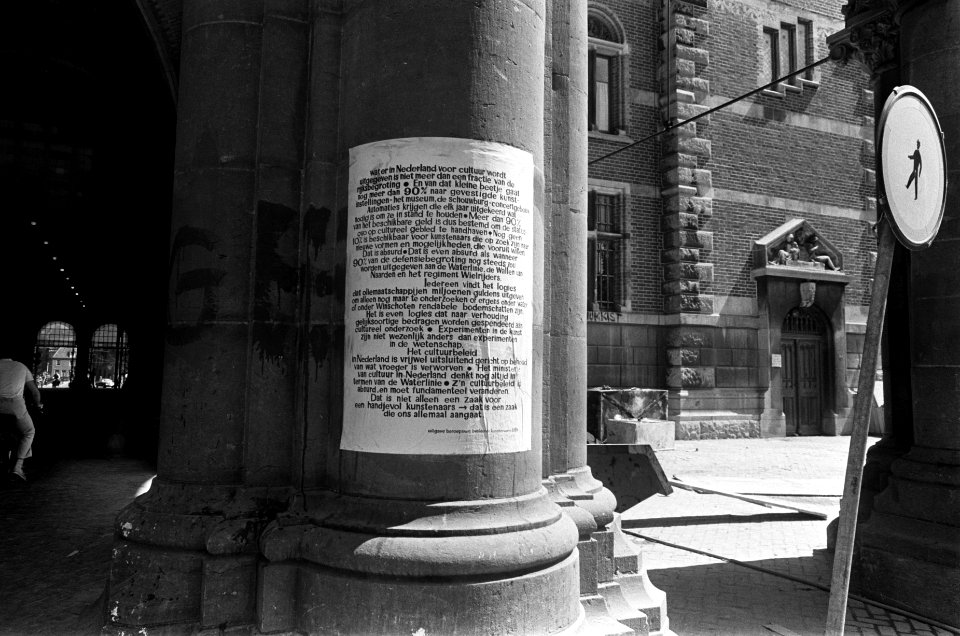 wat er in Nederland voor cultuur wordt
uitgegeven is niet meer dan een fractie van de
rijksbegroting • En van dat kleine beetje gaat
nog meer dan 90% naar gevestigde kunst-
instellingen - het museum, de schouwburg - concertgebouw
Automaties krijgen die elk jaar uitgekeerd wat
nodig is om ze in stand te houden • Meer dan 90%
van het beschikbare geld is dus bestemd om de status
quo op cultureel gebied te handhaven • Nog geen
10% is beschikbaar voor kunstenaars die op zoek zijn naar
nieuwe vormen en mogelijkheden, die vooruit willen
Dat is absurd • Dat is even absurd als wanneer
90% van de defensiebegroting nog steeds zou
worden uitgegeven aan de Waterlinie, de Wallen van
Naarden en het regiment Wielrijders.
Iedereen vindt het logies
dat oliemaatschappijen miljoenen guldens uitgeven
om alleen nog maar te onderzoeken of ergens onder water
of onder Winschoten rendabele bodemschatten zijn.
Het is even logies dat naar verhouding
gelijksoortige bedragen worden gespendeerd aan
cultureel onderzoek • Experimenten in de kunst
zijn niet wezenlijk anders dan experimenten
in de wetenschap.
Het cultuurbeleid
in Nederland is vrijwel uitsluitend gericht op behoud
van wat vroeger is verworven • Het ministerie
van cultuur in Nederland denkt nog altijd in
termen van de Waterlinie • Z'n cultuurbeleid is
absurd, en moet fundamenteel veranderen.
Dat is niet alleen een zaak voor
een handjevol kunstenaars → dat is een zaak
die ons allemaal aangaat.